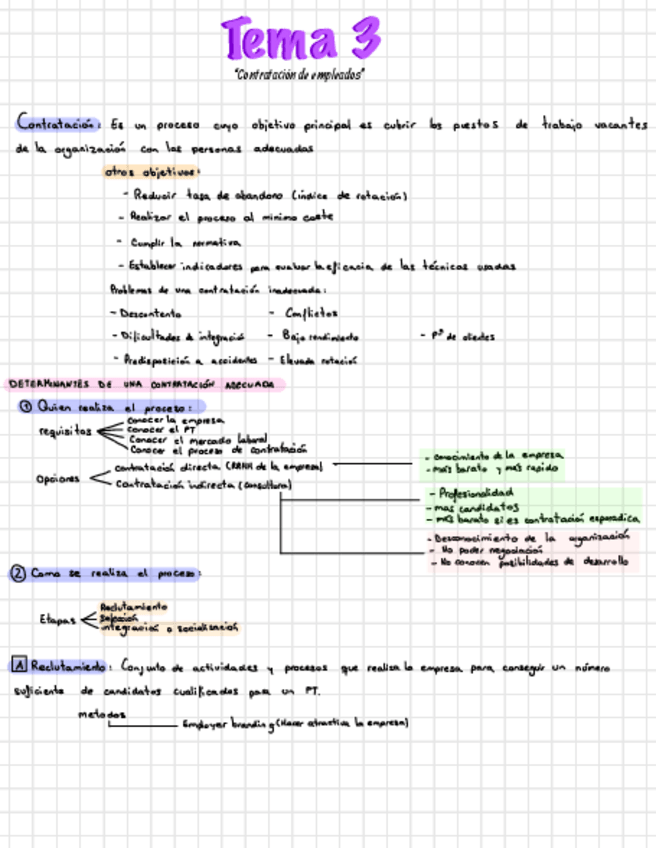 Tema 3
"Contratación de empleados"
Contratación: Es un proceso cuyo objetivo principal es cubrir los puestos de trabajo vacantes
de la organización con las personas adecuadas
otros objetivos:
- Reducir tasa de abandono (índice de rotación)
- Realizar el proceso al mínimo coste
- Cumplir la normativa
- Establecer indicadores para evaluar la eficacia de las técnicas usadas
Problemas de una contratación inadecuada:
- Descontento - Conflictos
- Dificultades de integració - Bajo rendimiento - de clientes
- Predisposición a accidentes - Elevada rotación
DETERMINANTES DE UNA CONTRATACIÓN ADECUADA
① Quien realiza el proceso:
requisitos
Conocer la empresa
Conocer el PT
Conocer el mercado laboral
Conocer el proceso de contratación
Opciones
contratación directa (RRHH de la empresa)
Contratación indirecta (consultora)
- conocimiento de la empresa
- más barato y más rapido
- Profesionalidad
- mas candidatos
- más barato si es contratación esporadica
- Desconocimiento de la organización
- No poder negociación
- No conocen posibilidades de desarrollo
② Como se realiza el proceso:
Etapas
Reclutamiento
Selección
integración o socialización
A Reclutamiento: Conjunto de actividades y procesos que realiza la empresa para conseguir un número
suficiente de candidatos cualificados para un PT.
metodos
Employer branding (Hacer atractiva la empresa)